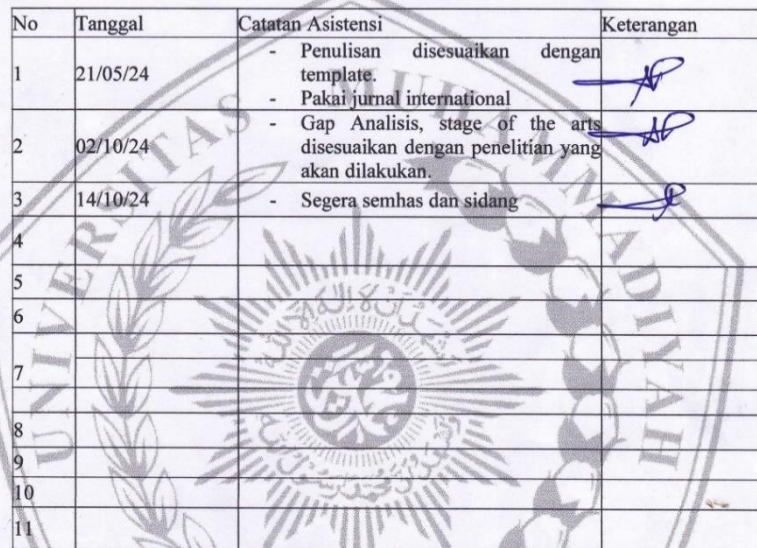 No Tanggal Catatan Asistensi Keterangan
1 21/05/24 - Penulisan disesuaikan dengan
template.
- Pakai jurnal international
2 02/10/24 - Gap Analisis, stage of the arts
disesuaikan dengan penelitian yang
akan dilakukan.
3 14/10/24 - Segera semhas dan sidang
4
5
6
7
8
9
10
11
UNIVERSITAS MUHAMMADIYAH